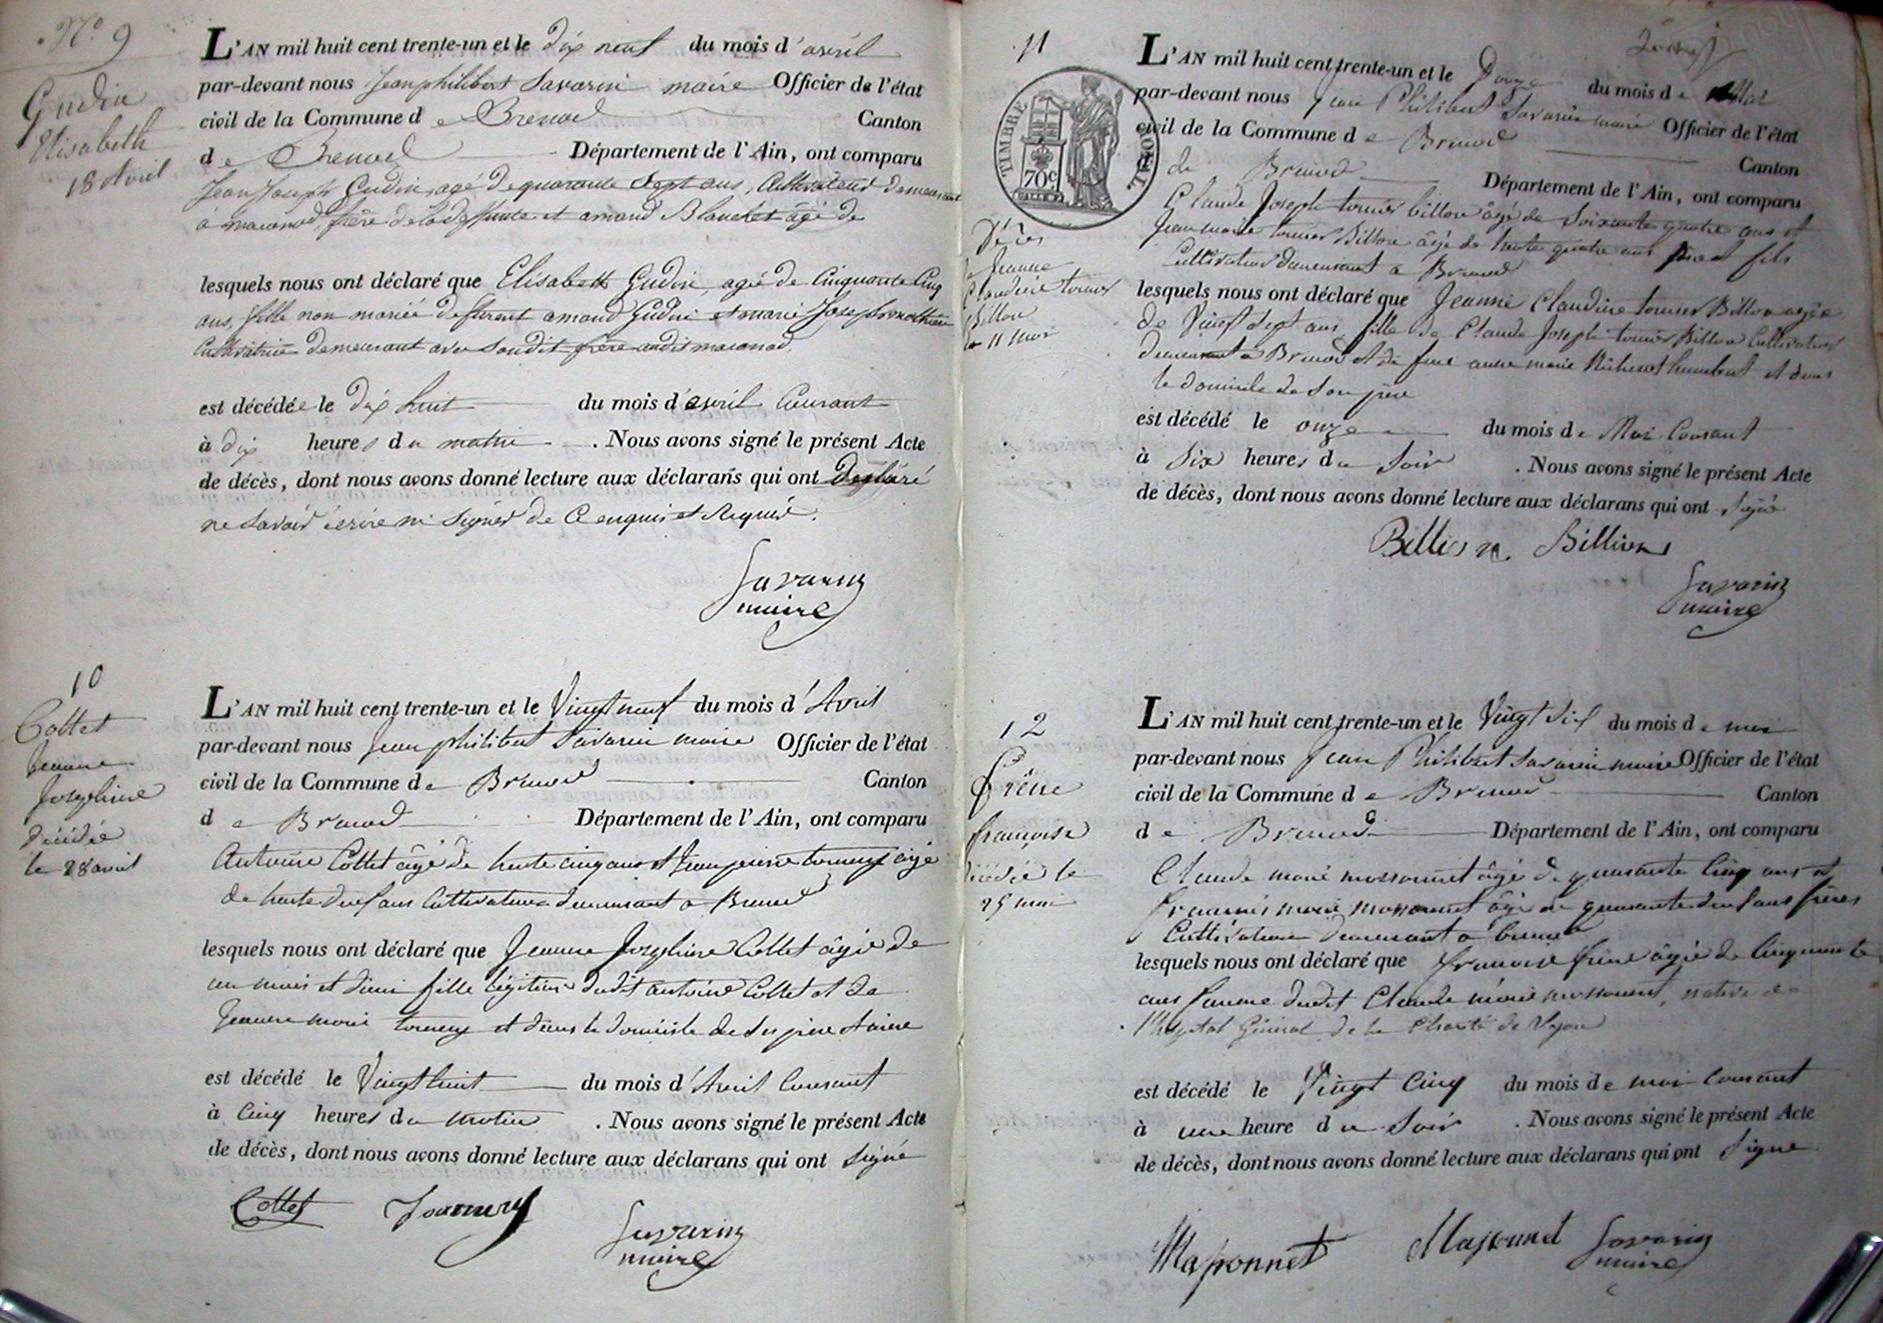 N.º 9
Gudin
Elisabeth
18 Avril
L'AN mil huit cent trente-un et le dix neuf du mois d'avril
par-devant nous Jean philibert Savarin maire Officier de l'état
civil de la Commune de Brenod Canton
de Brenod Département de l'Ain, ont comparu
Jean Joseph Gudin, agé de quarante Sept ans, Cultivateur demeurant
à maconod, frère de la deffunte et amand Blanchet âgé de
lesquels nous ont déclaré que Elisabeth Gudin, agée de Cinquante Cinq
ans, fille non mariée de deffunt amand Gudin et marie Josephte mathieu
Cultivatrice demeurant avec Son dit frère audit maconod,
est décédée le dix huit du mois d'avril Courant
à dix heures du matin. Nous avons signé le présent Acte
de décès, dont nous avons donné lecture aux déclarans qui ont Déclaré
ne Savoir écrire ni Signer de Ce enquis et Requis.
Savarin
maire
10
Collet
Jeanne
Josephine
Décédée
le 28 avril
L'AN mil huit cent trente-un et le Vingt neuf du mois d'Avril
par-devant nous Jean philibert Savarin maire Officier de l'état
civil de la Commune de Brenod Canton
de Brenod Département de l'Ain, ont comparu
Antoine Collet âgé de trente cinq ans et Jean pierre tournery âgé
de trente deux ans Cultivateurs demeurant a Brenod
lesquels nous ont déclaré que Jeanne Josephine Collet âgée de
un mois et demi fille légitime dudit antoine Collet et de
Jeanne marie tournery et dans le domicile de Ses père et mère
est décédé le Vingt huit du mois d'Avril Courant
à Cinq heures du matin. Nous avons signé le présent Acte
de décès, dont nous avons donné lecture aux déclarans qui ont Signé
Collet Tournery
Savarin
maire
11
TIMBRE ROYAL
70c
Décès
Jeanne
Claudine tournier
Billon
11 mai
L'AN mil huit cent trente-un et le Douze du mois de Mai
par-devant nous Jean Philibert Savarin maire Officier de l'état
civil de la Commune de Brenod Canton
de Brenod Département de l'Ain, ont comparu
Claude Joseph tournier billon âgé de Soixante quatre ans et
Jean marie tournier Billon âgé de trente quatre ans fils
Cultivateurs demeurant a Brenod
lesquels nous ont déclaré que Jeanne Claudine tournier Billon agée
de Vingt Sept ans fille de Claude Joseph tournier Billon Cultivateur
demeurant a Brenod et de feue anne marie humbert et dans
le domicile de Son père
est décédé le onze du mois de Mai Courant
à Six heures du Soir. Nous avons signé le présent Acte
de décès, dont nous avons donné lecture aux déclarans qui ont Signé
Billion Billion
Savarin
maire
12
Frène
françoise
Décédée le
25 mai
L'AN mil huit cent trente-un et le Vingt Six du mois de mai
par-devant nous Jean Philibert Savarin maire Officier de l'état
civil de la Commune de Brenod Canton
de Brenod Département de l'Ain, ont comparu
Claude marie massonnet âgé de quarante Cinq ans et
françois marie massonnet âgé de quarante deux ans frères
Cultivateurs demeurant a brenod
lesquels nous ont déclaré que françoise frène âgée de Cinquante
ans femme dudit Claude marie massonnet, native de
l'hopital Général de la Charité de Lyon
est décédé le Vingt Cinq du mois de mai Courant
à une heure du Soir. Nous avons signé le présent Acte
de décès, dont nous avons donné lecture aux déclarans qui ont Signé
Massonnet Massonnet Savarin
maire